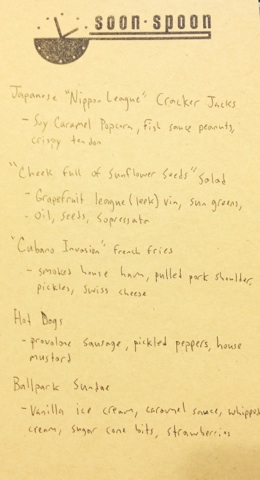 soon-spoon
Japanese "Nippon League" Cracker Jacks
- Soy Caramel Popcorn, fish sauce peanuts,
crispy tendon
"Cheek full of Sunflower Seeds" Salad
- Grapefruit league (leek) vin, sun greens,
- Oil, seeds, sopressata
"Cubano Invasion" french fries
- smoked house ham, pulled pork shoulder,
pickles, swiss cheese
Hot Dogs
- provolone sausage, pickled peppers, house
mustard
Ballpark Sundae
- Vanilla ice cream, caramel sauce, whipped
cream, sugar cone bits, strawberries